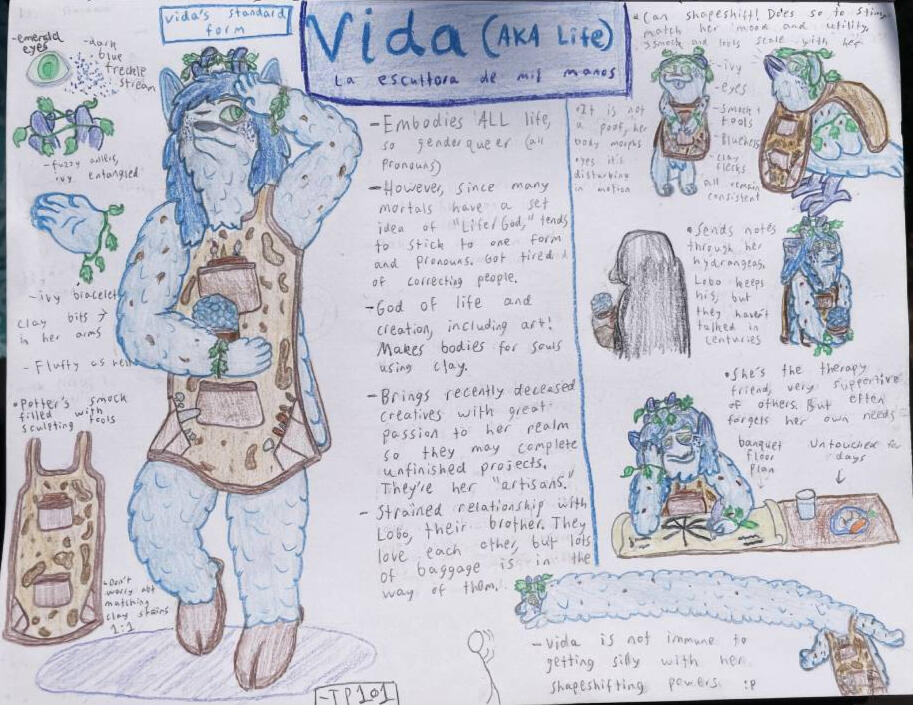 Vida's standard
form
Vida (AKA Life)
La escultora de mis manos
-emerald
eyes
-dark
blue
freckle
stream
-fuzzy antlers,
ivy entangled
-ivy bracelet
clay bits →
in her arms
- Fluffy as hell
•Potter's smock
filled with
sculpting tools
•Don't
worry abt
matching
clay stains
1:1
-Embodies ALL life,
so genderqueer (all
pronouns)
-However, since many
mortals have a set
idea of "Life/God," tends
to stick to one form
and pronouns. Got tired
of correcting people.
-God of life and
creation, including art!
Makes bodies for souls
using clay.
-Brings recently deceased
creatives with great
passion to her realm
so they may complete
unfinished projects.
They're her "artisans."
- Strained relationship with
Lobo, their brother. They
love each other, but lots
of baggage is in the
way of them.
-TP101
•Can shapeshift! Does so to
match her mood and utility,
smock and tools scale with her
•It is not
a poof, her
body morphs
•yes it's
disturbing
in motion
-ivy
-eyes
-smock +
tools
-Bluehair
-clay
flecks
all remain
consistent
•Sends notes
through her
hydrangeas.
Lobo keeps
his, but
they haven't
talked in
centuries
•She's the therapy
friend, very supportive
of others. But often
forgets her own needs
banquet
floor
plan
untouched for
days
-Vida is not immune to
getting silly with her
shapeshifting powers :P